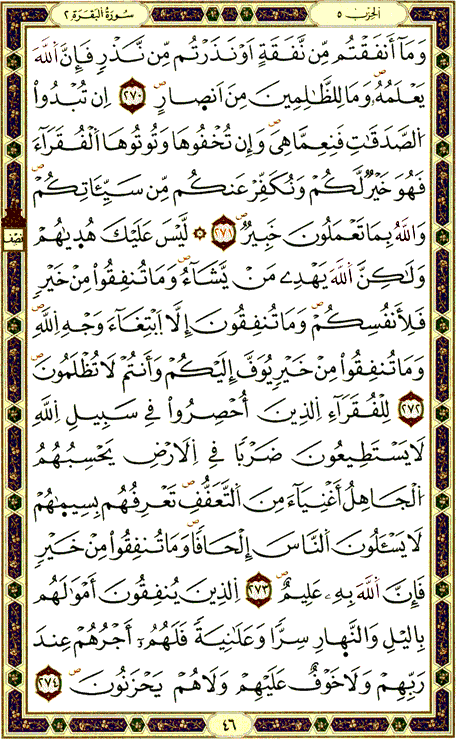 الحزب ٥
سُورَةُ الْبَقَرَةِ ٢
وَمَآ أَنفَقْتُم مِّن نَّفَقَةٍ اَوْ نَذَرْتُم مِّن نَّذْرٖ فَإِنَّ اَللَّهَ
يَعْلَمُهُۥ وَمَا لِلظَّٰلِمِينَ مِنَ اَنصِارٍ ٢٧٠ اِن تُبْدُواْ
اُلصَّدَقَٰتِ فَنِعِمَّا هِيَ وَإِن تُخْفُوهَا وَتُوتُوهَا اَلْفُقَرَآءَ
فَهُوَ خَيْرٌ لَّكُمْ وَنُكَفِّرْ عَنكُم مِّن سَيِّـَٔاتِكُمْ
وَاللَّهُ بِمَا تَعْمَلُونَ خَبِيرٌ ٢٧١ ۞ لَّيْسَ عَلَيْكَ هُدَيٰهُمْ
وَلَٰكِنَّ اَللَّهَ يَهْدِے مَنْ يَّشَآءُ وَمَا تُنفِقُواْ مِنْ خَيْرٖ
فَلِأَنفُسِكُمْ وَمَا تُنفِقُونَ إِلَّا اَبْتِغَآءَ وَجْهِ اِللَّهِ
وَمَا تُنفِقُواْ مِنْ خَيْرٖ يُوَفَّ إِلَيْكُمْ وَأَنتُمْ لَا تُظْلَمُونَ
٢٧٢ لِلْفُقَرَآءِ اِلذِينَ أُحْصِرُواْ فِے سَبِيلِ اِللَّهِ
لَا يَسْتَطِيعُونَ ضَرْبٗا فِے اِلَارْضِ يَحْسِبُهُمُ
اُلْجَاهِلُ أَغْنِيَآءَ مِنَ اَلتَّعَفُّفِ تَعْرِفُهُم بِسِيمَٰهُمْ
لَا يَسْـَٔلُونَ اَلنَّاسَ إِلْحَافٗا وَمَا تُنفِقُواْ مِنْ خَيْرٖ
فَإِنَّ اَللَّهَ بِهِۦ عَلِيمٌ ٢٧٣ اِلذِينَ يُنفِقُونَ أَمْوَٰلَهُم
بِاليْلِ وَالنَّهارِ سِرّٗا وَعَلَٰنِيَةٗ فَلَهُمُۥٓ أَجْرُهُمْ عِندَ
رَبِّهِمْ وَلَا خَوْفٌ عَلَيْهِمْ وَلَا هُمْ يَحْزَنُونَ ٢٧٤
نصف
٤٦